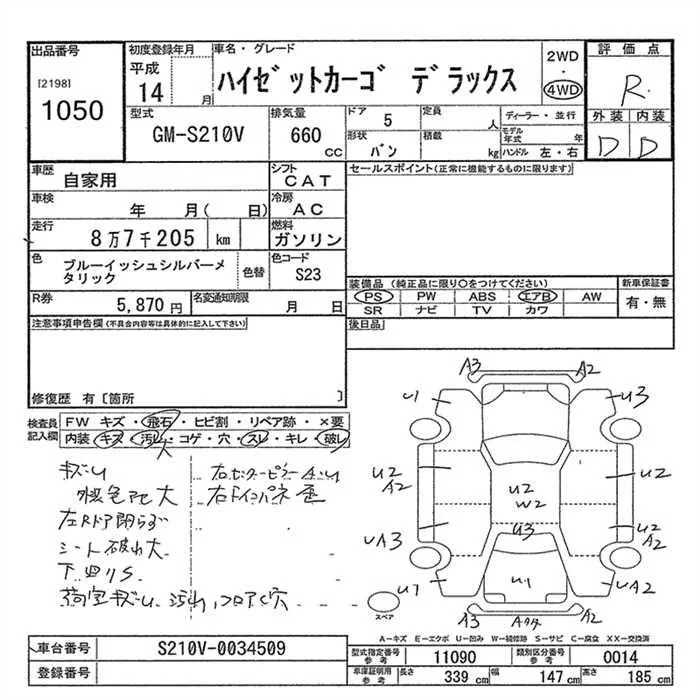 出品番号
[2198]
1050
初度登録年月
平成
14 月
車名・グレード
ハイゼットカーゴ デラックス
2WD
・
4WD
評価点
R
外装 内装
D D
型式
GM-S210V
排気量
660 CC
ドア 5
定員 人
形状 バン
積載 kg
ディーラー・並行
モデル年式 年
ハンドル 左・右
車歴 自家用
シフト CAT
車検 年 月( 日)
冷房 AC
走行 8万7千205 km
燃料 ガソリン
色 ブルーイッシュシルバーメタリック
色替
色コード S23
R券 5,870円
名変通知期限 月 日
セールスポイント(正常に機能するものに限ります)
装備品(純正品に限り○をつけてください)
PS PW ABS エアB AW
SR ナビ TV カワ
新車保証書
有・無
後日品
注意事項申告欄(不具合内容等は具体的に記入して下さい)
修復歴 有[箇所 ]
検査員記入欄
FW キズ・飛石・ヒビ割・リペア跡・×要
内装 キズ・汚レ・コゲ・穴・スレ・キレ・破レ
大
キズU
左Rドア閉らず
シート破れ大
下回りS
荷室キズU
A3 A2
U1 U3
U2 A2
U2
U2 W2
U3
U2 A2
UA3
U1
U1
U2 A2
A3 A2
スペア
A-キズ E-エクボ U-凹み W-補修跡 S-サビ C-腐食 XX-交換済
車台番号 S210V-0034509
登録番号
型式指定番号 参考 11090
類別区分番号 参考 0014
車庫証明用 参考
長さ 339 cm
幅 147 cm
高さ 185 cm